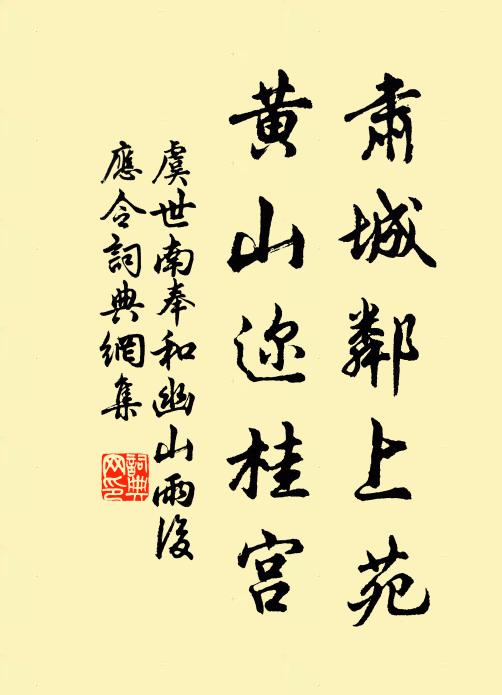 肅城鄰上苑
黄山迩桂宫
虞世南奉和幽山雨後
應令詞典網集
詞典
网印